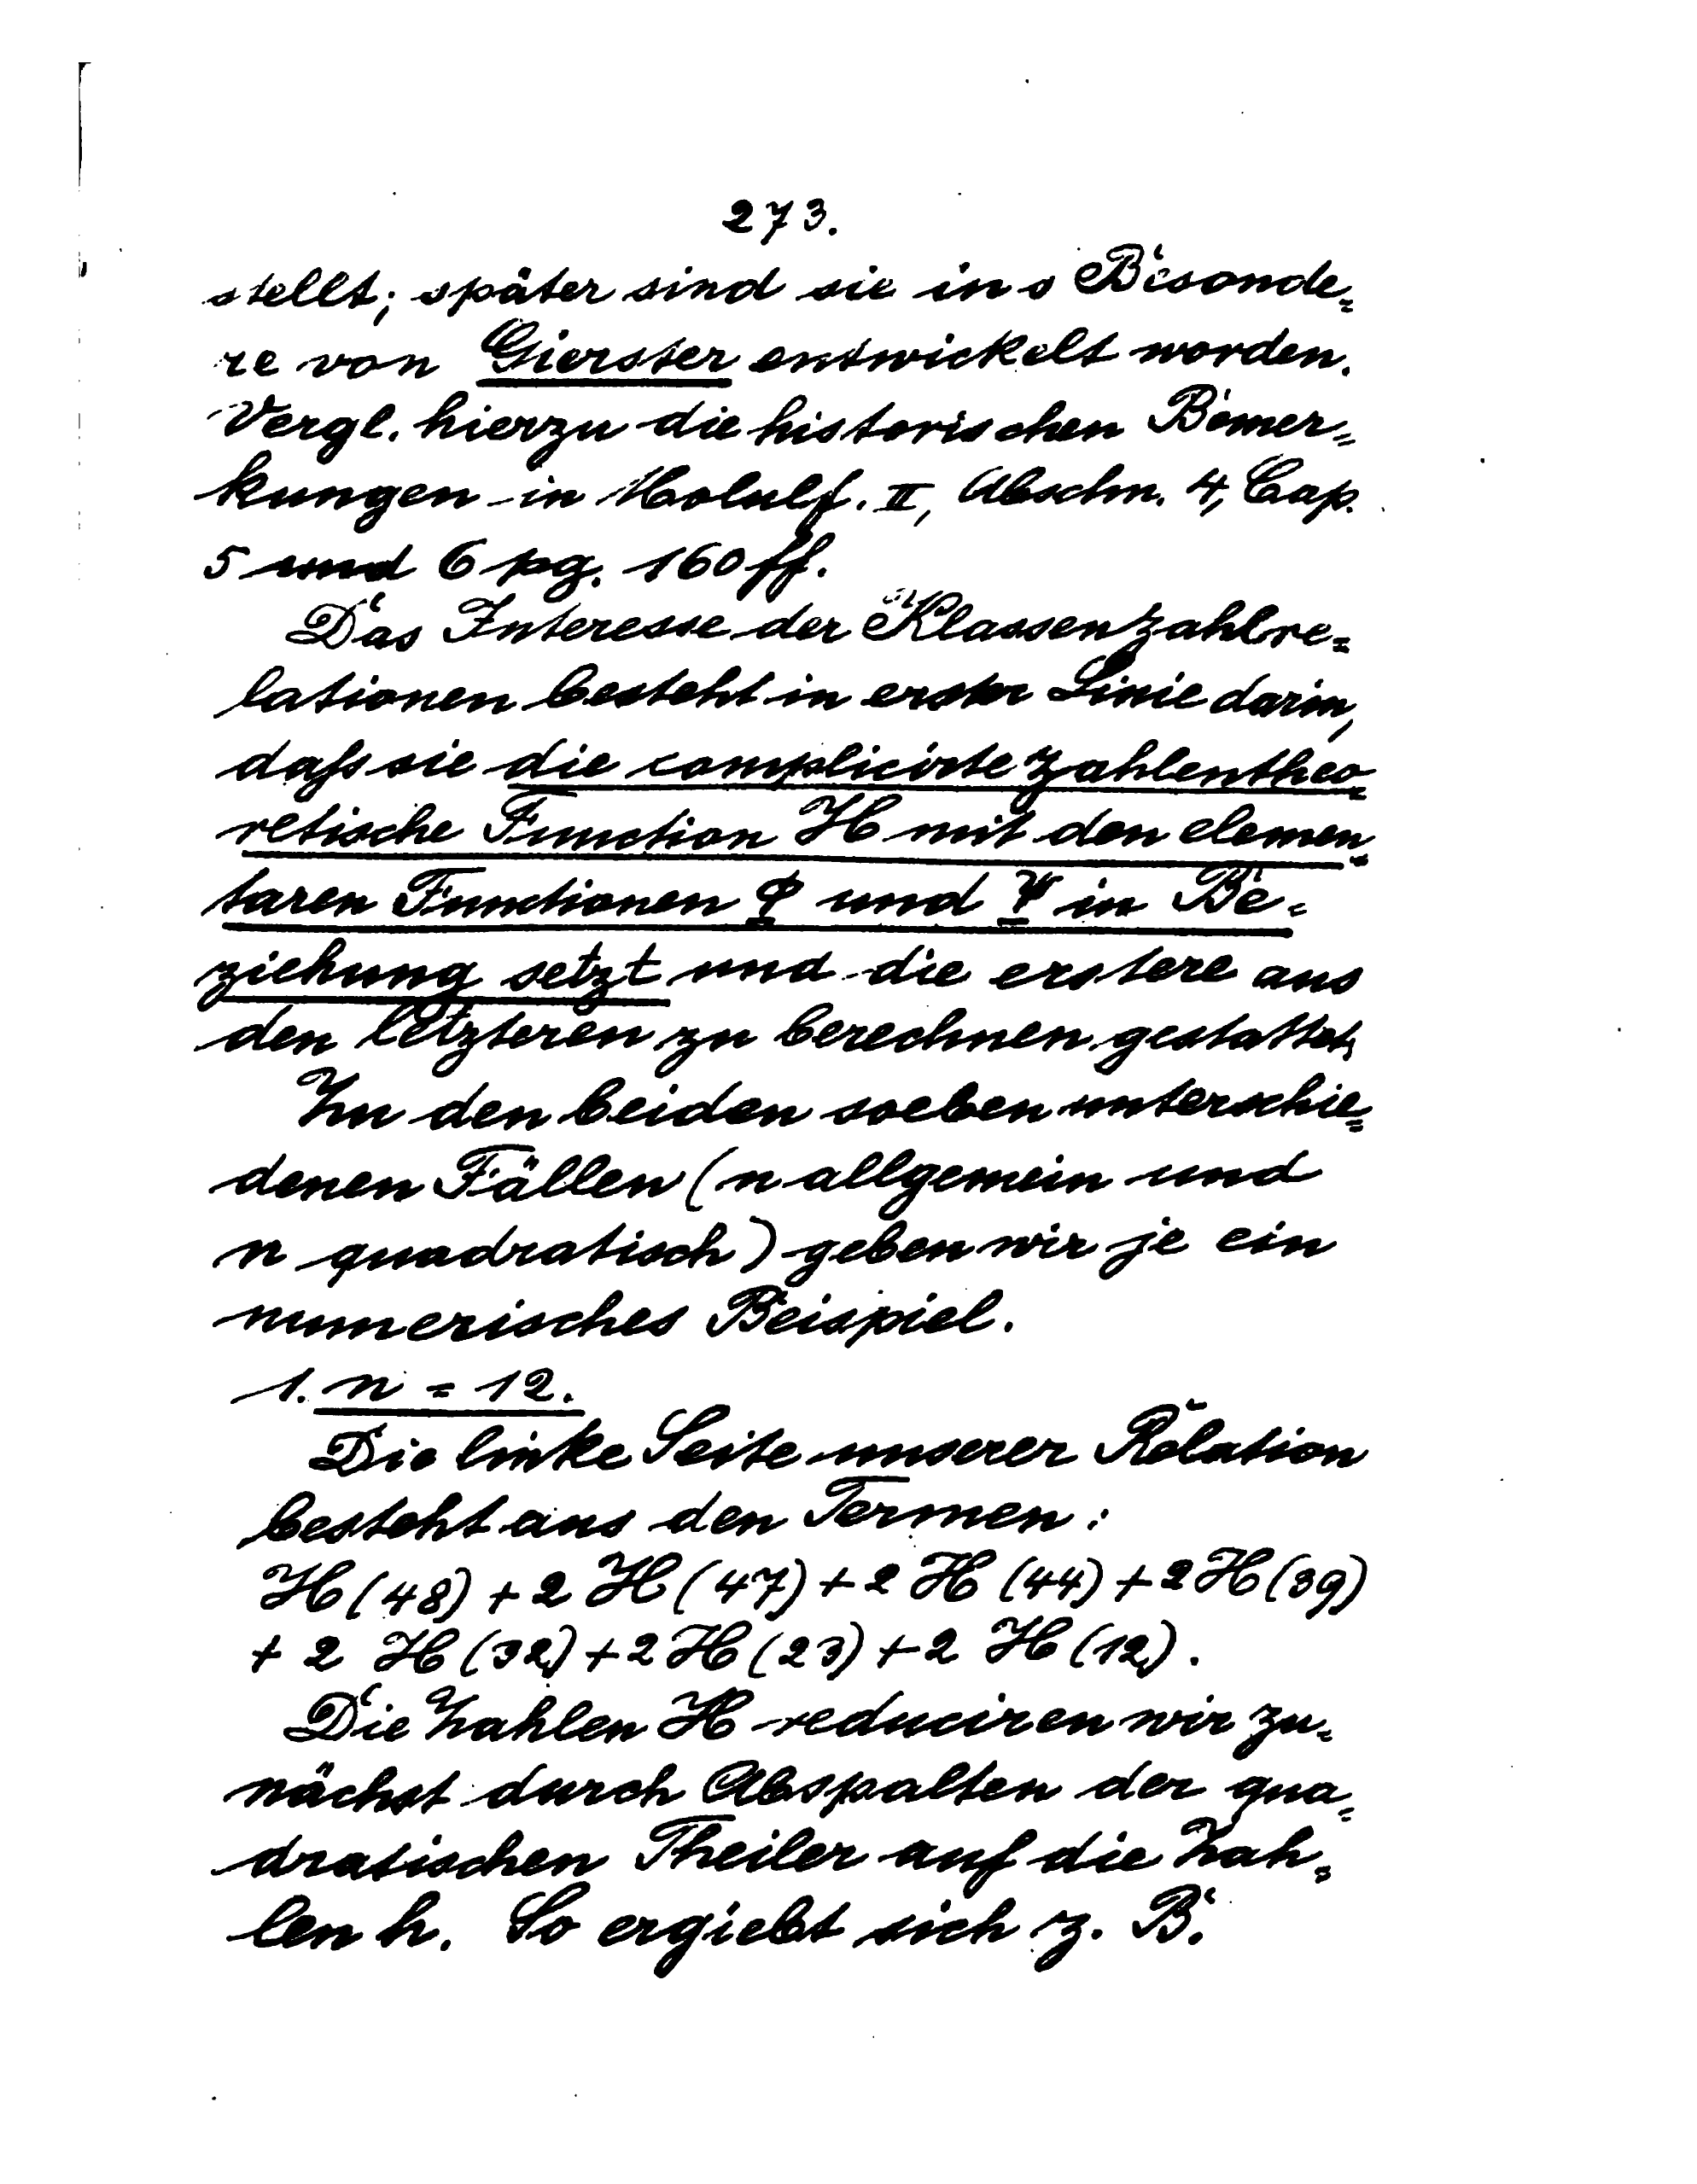 273.
stellt; später sind sie ins Besonde=
re von Gierster entwickelt worden.
Vergl. hierzu die historischen Bemer=
kungen in Molulf. II, Abschn. 4, Cap.
5 und 6 pg. 160 ff.
Das Interesse der Klassenzahlre=
lationen besteht in erster Linie darin,
daſs sie die complicirte zahlentheo=
retische Function H mit den elemen=
taren Functionen Φ und Ψ in Be=
ziehung setzt und die erstere aus
den letzteren zu berechnen gestattet.
In den beiden soeben unterschie=
denen Fällen (n allgemein und
n quadratisch) geben wir je ein
numerisches Beispiel.
1. n = 12.
Die linke Seite unserer Relation
besteht aus den Termen:
H(48) + 2 H(47) + 2 H(44) + 2 H(39)
+ 2 H(32) + 2 H(23) + 2 H(12).
Die Zahlen H reduciren wir zu=
nächst durch Abspalten der qua=
dratischen Theiler auf die Zah=
len h. So ergiebt sich z. B.